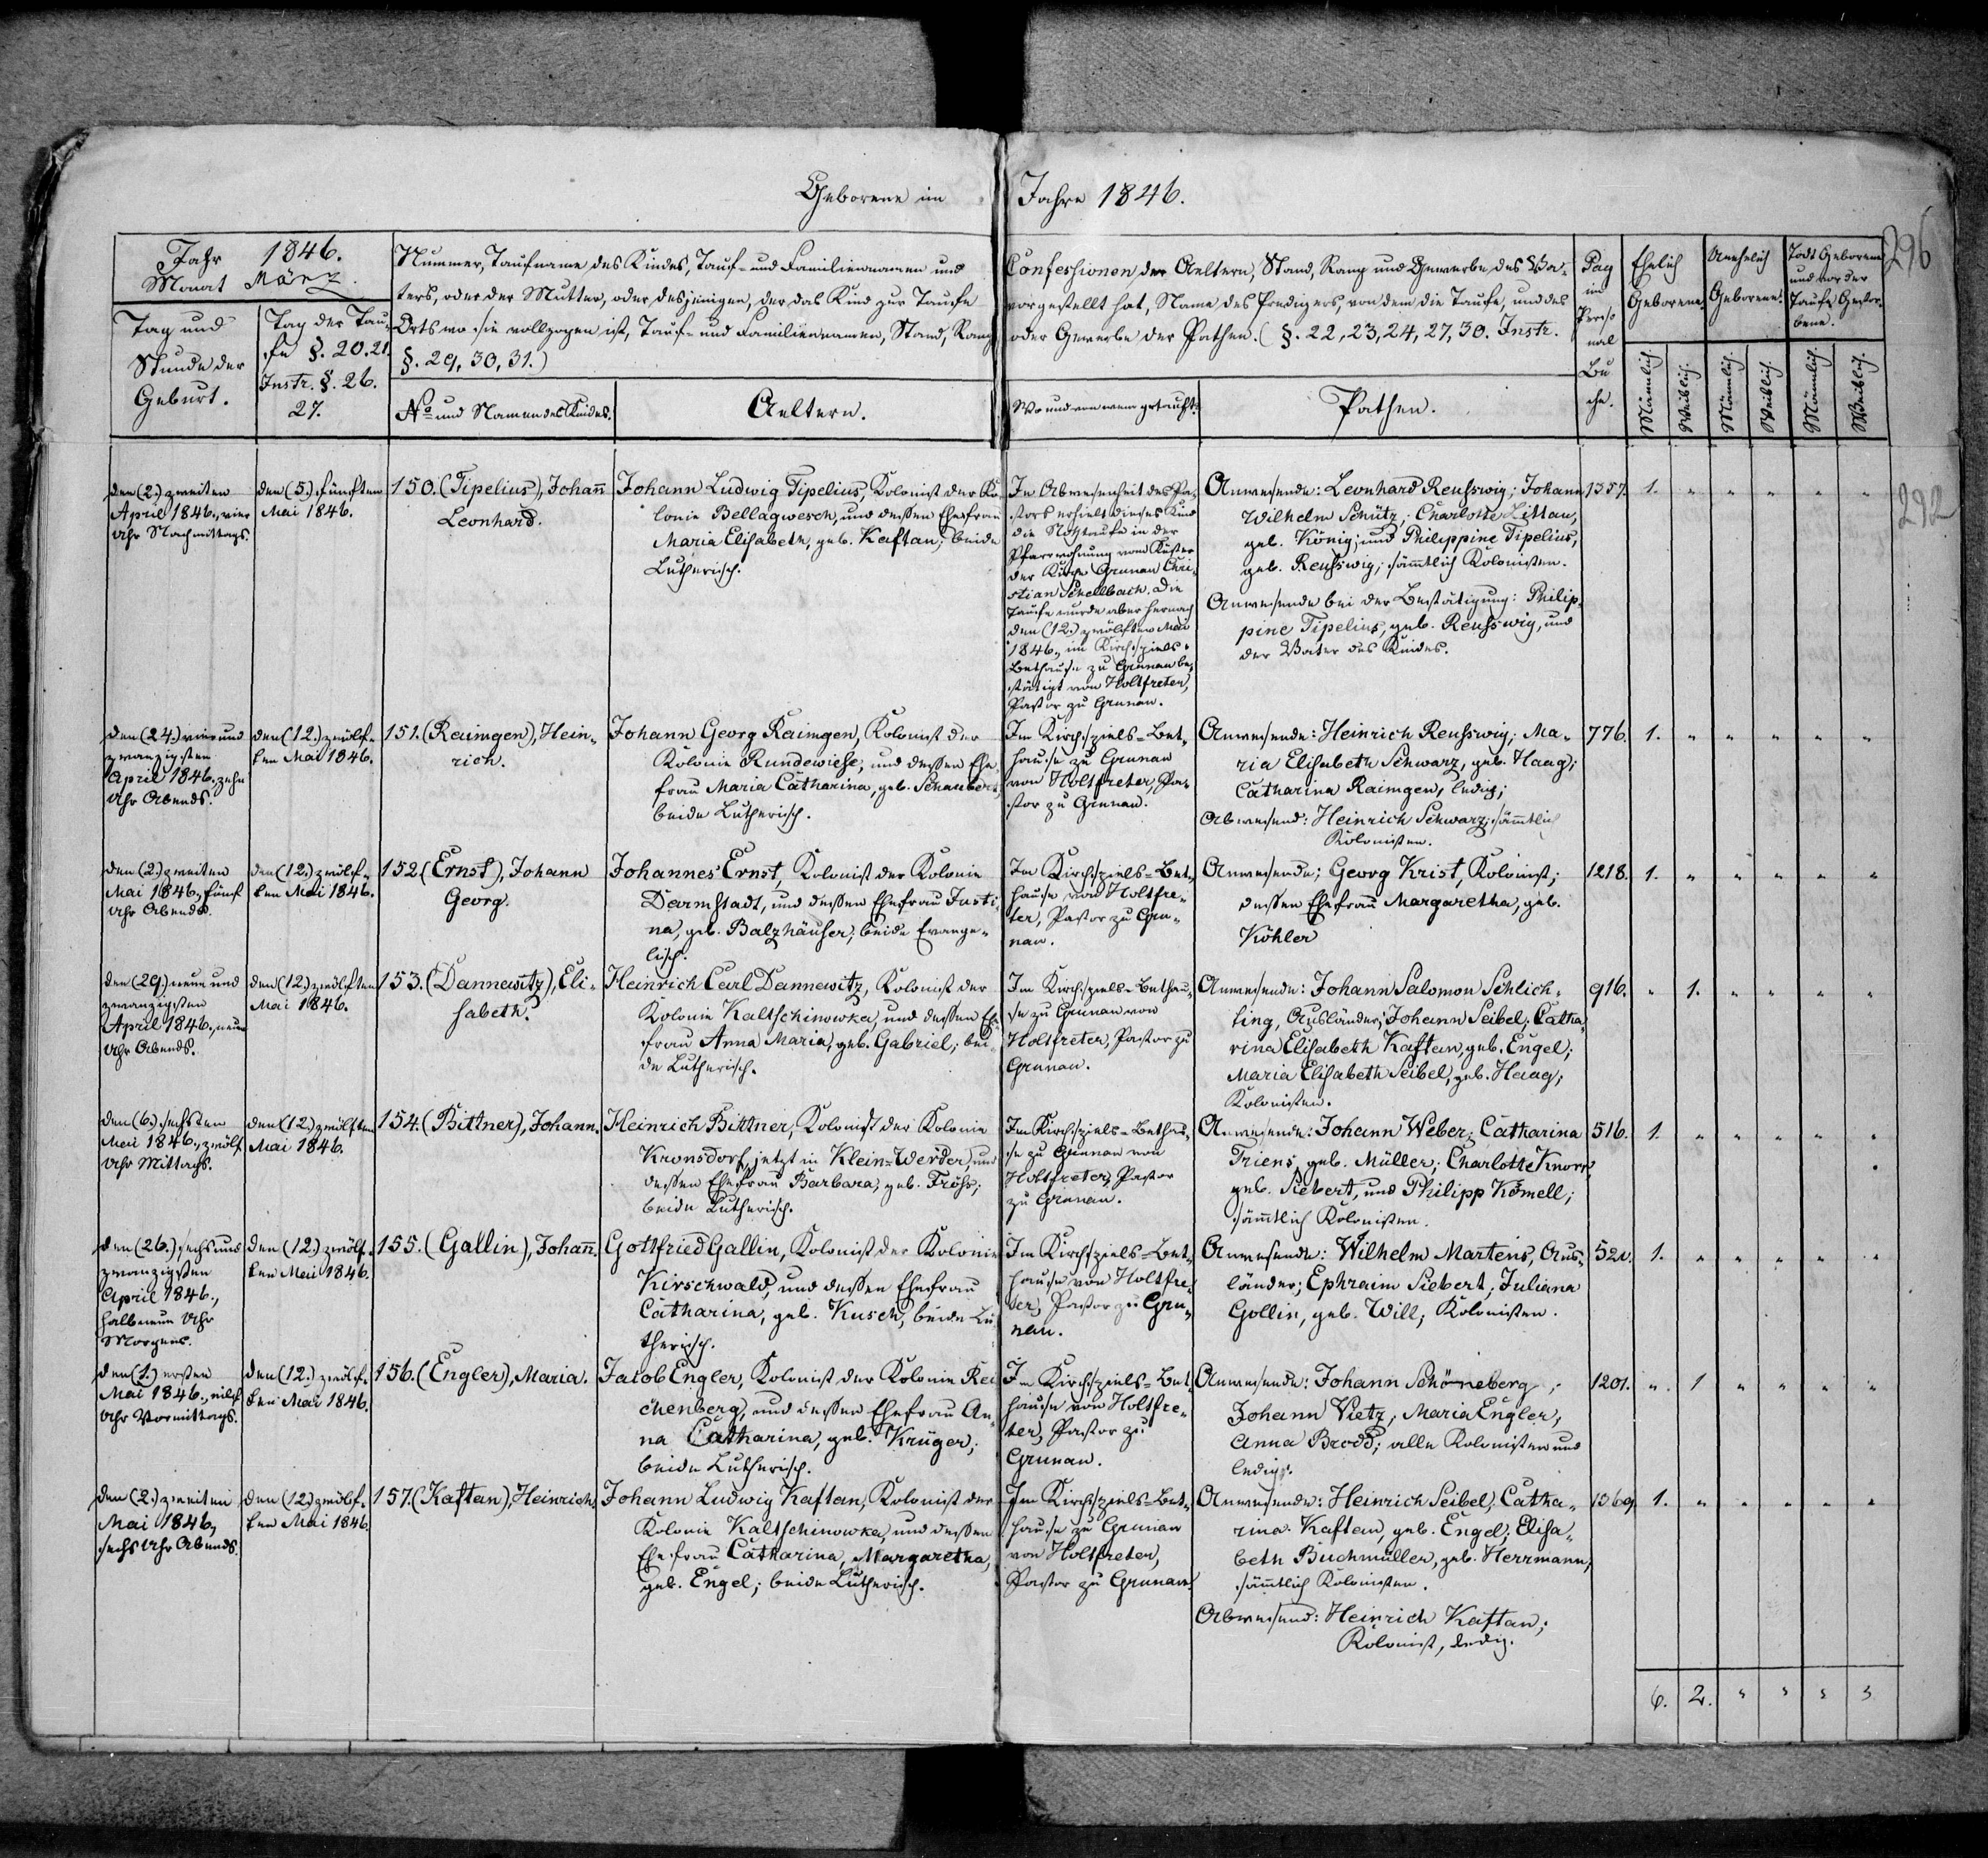 Geborene im Jahre 1846.
296
292
Jahr 1846.
Monat März.
Tag und
Stunde der
Geburt.
Tag der Tau-
fe §. 20. 21.
Instr. §. 26.
27.
Nummer, Taufname des Kindes, Tauf- und Familiennamen und
ters, oder der Mutter, oder desjenigen, der das Kind zur Taufe
Orts wo sie vollzogen ist, Tauf- und Familiennamen, Stand, Rang
§. 29, 30, 31.)
No und Namen des Kindes.
Aeltern.
Confessionen der Aeltern, Stand, Rang und Gewerbe des Va-
vorgestellt hat, Name des Predigers, von dem die Taufe, und des
oder Gewerbe der Pathen. (§. 22, 23, 24, 27, 30. Instr.
Wo und von wem getauft.
Pathen.
Pag
im
Perso
nal
Bu
che.
Ehelich
Geborene.
Unehelich
Geborene.
Todt Geborene
und vor der
Taufe Gestor-
bene.
Männlich.
Weiblich.
Männlich.
Weiblich.
Männlich.
Weiblich.
den (2.) zweiten
April 1846., vier
Uhr Nachmittags.
den (5.) fünften
Mai 1846.
150. (Tipelius), Johann
Leonhard.
Johann Ludwig Tipelius, Kolonist der Ko-
lonie Bellagwesch, und dessen Ehefrau
Maria Elisabeth, geb. Kaftan; beide
Lutherisch.
In Abwesenheit des Pa-
stors erhielt dieses Kind
die Nothtaufe in der
Pfarrwohnung vom Küster
der Kirche Grunau Chri-
stian Schellbach. Die
Taufe wurde aber hernach
den (12.) zwölften Mai
1846., im Kirchspiels-
Bethause zu Grunau be-
stätigt von Holtfreter,
Pastor zu Grunau.
Anwesende: Leonhard Reusswig; Johann
Wilhelm Schütz; Charlotte Littau,
geb. König; und Philippine Tipelius,
geb. Reusswig; sämmtlich Kolonisten.
Anwesende bei der Bestätigung: Philip-
pine Tipelius, geb. Reusswig, und
der Vater des Kindes.
1357. 1. " " " " "
den (24.) vier und
zwanzigsten
April 1846., zehn
Uhr Abends.
den (12.) zwölf-
ten Mai 1846.
151. (Raimgen), Hein-
rich.
Johann Georg Raimgen, Kolonist der
Kolonie Rundewiese, und dessen Ehe
frau Maria Catharina, geb. Schaubert,
beide Lutherisch.
Im Kirchspiels-Bet-
hause zu Grunau
von Holtfreter, Pa-
stor zu Grunau.
Anwesende: Heinrich Reusswig; Ma-
ria Elisabeth Schwarz, geb. Haag;
Catharina Raimgen, ledig;
Abwesend: Heinrich Schwarz; sämmtlich
Kolonisten.
776. 1. " " " " "
den (2.) zweiten
Mai 1846., fünf
Uhr Abends.
den (12.) zwölf-
ten Mai 1846.
152. (Ernst), Johann
Georg.
Johannes Ernst, Kolonist der Kolonie
Darmstadt, und dessen Ehefrau Justi-
na, geb. Balzhäuser, beide Evange-
lisch.
Im Kirchspiels-Bet-
hause von Holtfre-
ter, Pastor zu Gru-
nau.
Anwesende; Georg Krist, Kolonist;
dessen Ehefrau Margaretha, geb.
Köhler
1218. 1. " " " " "
den (29.) neun und
zwanzigsten
April 1846., neun
Uhr Abends.
den (12.) zwölften
Mai 1846.
153. (Dannewitz), Eli-
sabeth.
Heinrich Carl Dannewitz, Kolonist der
Kolonie Kaltschinowka, und dessen Ehe
frau Anna Maria, geb. Gabriel; bei-
de Lutherisch.
Im Kirchspiels-Bethau-
se zu Grunau von
Holtfreter, Pastor zu
Grunau.
Anwesende: Johann Salomon Schlich-
ting, Ausländer; Johann Seibel; Catha-
rina Elisabeth Kaftan, geb. Engel;
Maria Elisabeth Seibel, geb. Haag;
Kolonisten.
916. " 1. " " " "
den (6.) sechsten
Mai 1846., zwölf
Uhr Mittags.
den (12.) zwölften
Mai 1846.
154. (Bittner), Johann.
Heinrich Bittner, Kolonist der Kolonie
Kronsdorf, jetzt in Klein-Werder, und
dessen Ehefrau Barbara, geb. Fröhs;
beide Lutherisch.
Im Kirchspiels-Bethau-
se zu Grunau von
Holtfreter, Pastor
zu Grunau.
Anwesende: Johann Weber; Catharina
Triens, geb. Müller; Charlotte Knorr,
geb. Siebert, und Philipp Komell;
sämmtlich Kolonisten.
516. 1. " " " " "
den (26.) sechs und
zwanzigsten
April 1846.,
halb neun Uhr
Morgens.
den (12.) zwölf-
ten Mai 1846.
155. (Gallin), Johann.
Gottfried Gallin, Kolonist der Kolonie
Kirschwald, und dessen Ehefrau
Catharina, geb. Kusch, beide Lu-
therisch.
Im Kirchspiels-Bet-
hause von Holtfre-
ter, Pastor zu Gru-
nau.
Anwesende: Wilhelm Martens, Aus-
länder; Ephraim Siebert; Juliana
Gollin, geb. Will; Kolonisten.
520. 1. " " " " "
den (1.) ersten
Mai 1846., eilf
Uhr Vormittags.
den (12.) zwölf-
ten Mai 1846.
156. (Engler), Maria.
Jacob Engler, Kolonist der Kolonie Rei
chenberg, und dessen Ehefrau An-
na Catharina, geb. Krüger;
beide Lutherisch.
Im Kirchspiels-Bet-
hause von Holtfre-
ter, Pastor zu
Grunau.
Anwesende: Johann Schöneberg;
Johann Vietz, Maria Engler,
Anna Brodd; alle Kolonisten und
ledig.
1201. " 1 " " " "
den (2.) zweiten
Mai 1846,
sechs Uhr Abends.
den (12.) zwölf-
ten Mai 1846.
157. (Kaftan), Heinrich.
Johann Ludwig Kaftan, Kolonist der
Kolonie Kaltschinowka, und dessen
Ehefrau Catharina, Margaretha,
geb. Engel; beide Lutherisch.
Im Kirchspiels-Bet-
hause zu Grunau
von Holtfreter,
Pastor zu Grunau.
Anwesende: Heinrich Seibel, Catha-
rina Kaftan, geb. Engel; Elisa-
beth Buchmüller, geb. Herrmann,
sämmtlich Kolonisten.
Abwesend: Heinrich Kaftan;
Kolonist, ledig.
1369 1. " " " " "
6. 2. " " " "